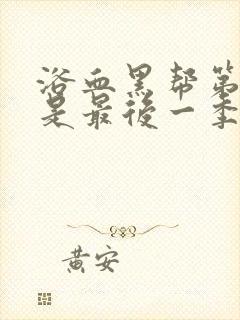 浴血黑帮第
是最後一季
黃安